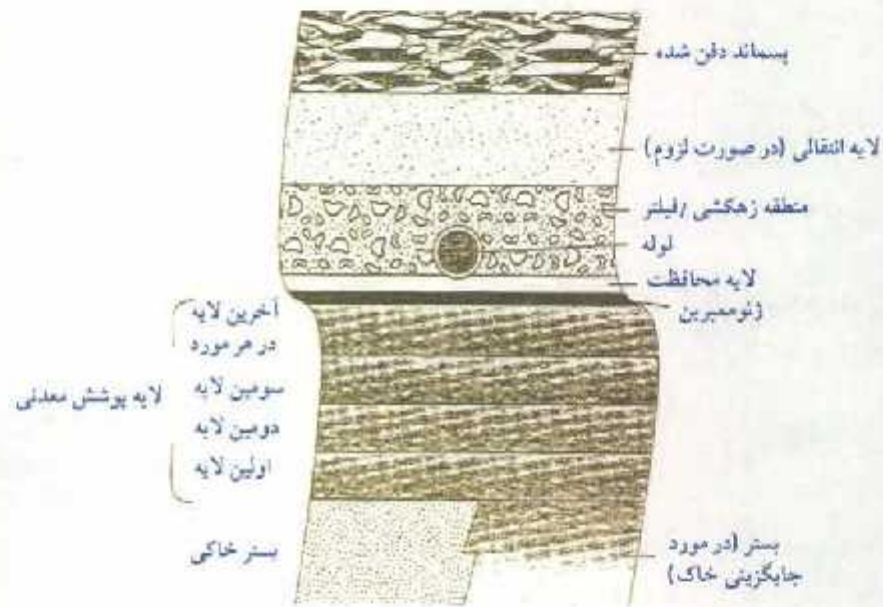 پسماند دفن شده
لایه انتقالی (در صورت لزوم)
منطقه زهکشی / فیلتر
لوله
لایه محافظت
ژئوممبرین
آخرین لایه
در هر مورد
سومین لایه
لایه پوشش معدنی
دومین لایه
اولین لایه
بستر خاکی
بستر (در مورد
جایگزینی خاک)